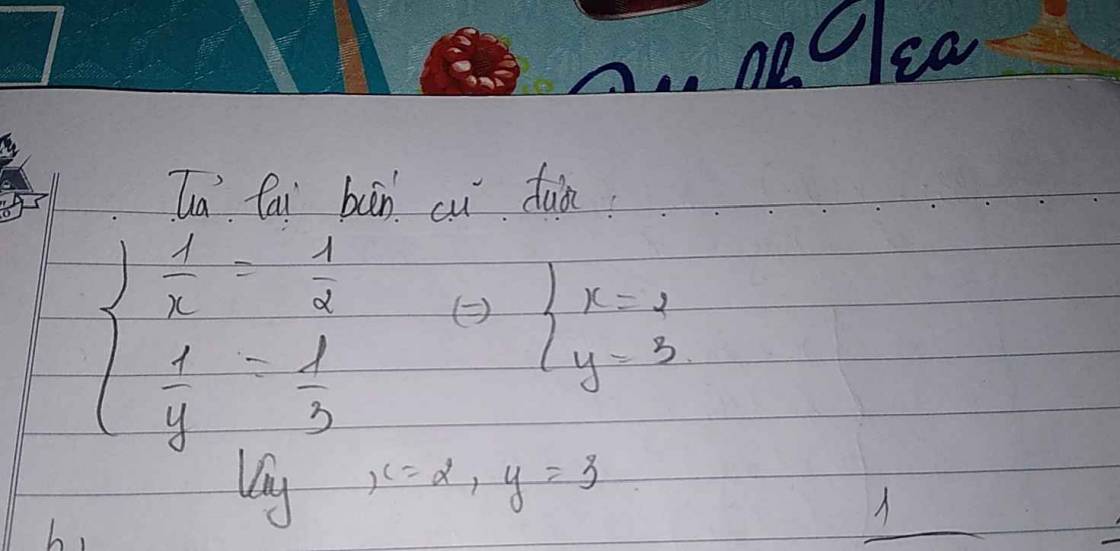 Tea
Trả lại biến cũ được:
{ 1/x = 1/2
1/y = 1/3
(=) { x = 2
y = 3.
Vậy x = 2, y = 3
b)
1